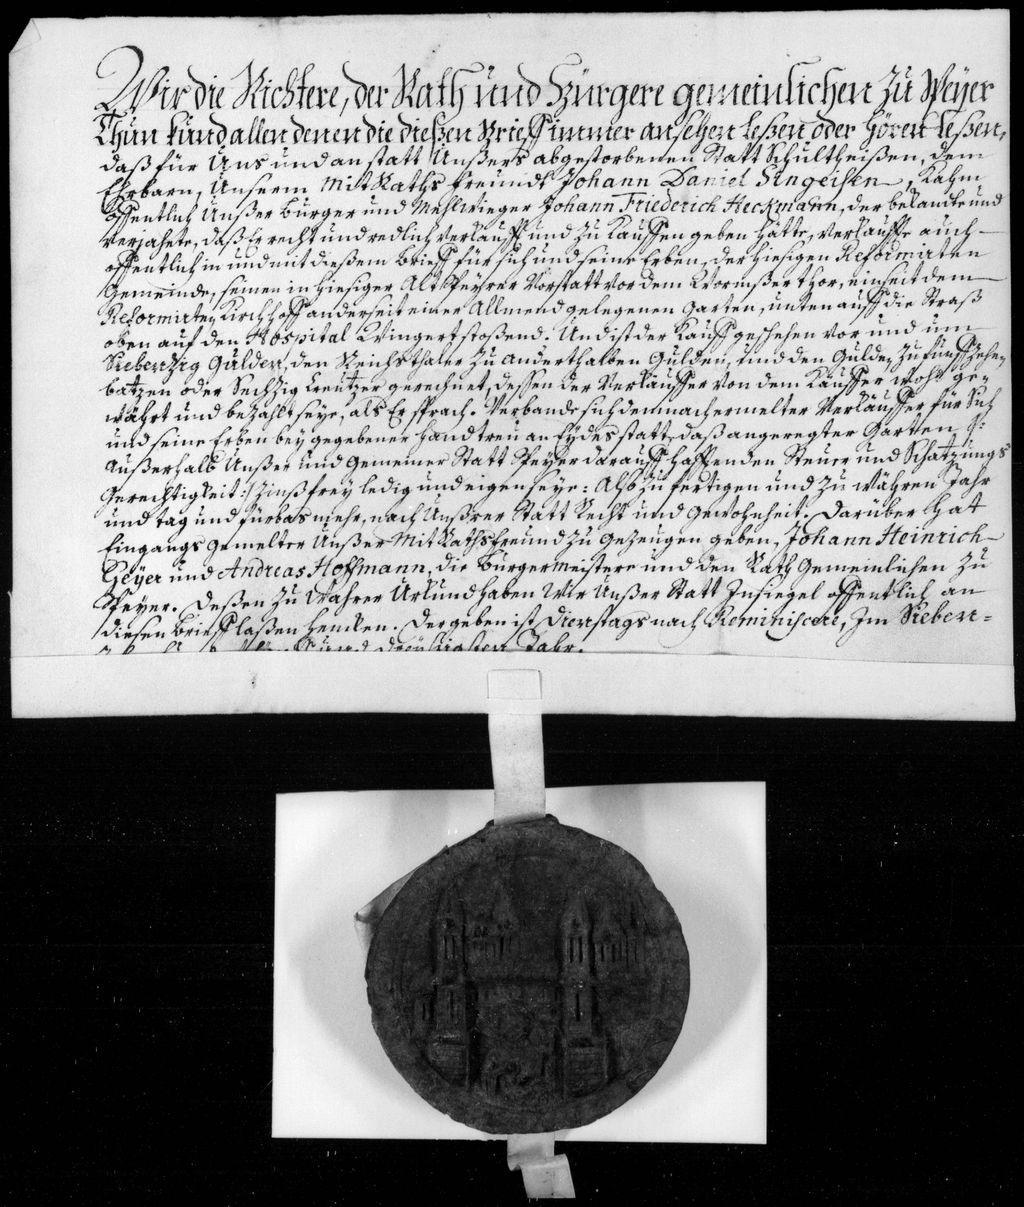 Wir die Richtere, der Rath und Bürgere gemeinlichen zu Speyer
Thun kund allen denen die dießen Brieff immer ansehen leßen oder hören leßen,
daß für Uns und anstatt Unßers abgestorbenen Statt Schultheißen, dem
Ehrbarn, Unserm MitRaths Freundt Johann Daniel, Kahm
öffentlich Unßer Burger und Mehlwieger Johann Friederich Heckmann, der bekandte und
verjahete, daß Er recht und redlich verkaufft und zu kauffen geben hätte, verkauffte auch
offentlich in und mit dießem Brieff für sich und seine Erben, der hiesigen Reformirten
Gemeinde, seinen in hiesiger Alt Speyrer Vorstatt vor dem Wormßer thor, einseit dem
Reformirten Kirchhoff anderseit einer Allmend gelegenen Garten, unten auff die Straß
oben auf den Hospital Wingert stoßend. Und ist der Kauff geschehen vor und um
Siebenzig Gulden, den Reichsthaler zu anderthalben Gulden, und den Gulden zu fünffzehen
batzen oder Sechzig Creutzer gerechnet, dessen der Verkäuffer von dem Käuffer wohl ge-
währt und bezahlt seye, als Er sprach. Verbande sich demnach ermelter Verkäuffer für Sich
und seine Erben bey gegebener handtreu an Eydes statt, daß angeregter Garten
außerhalb Unßer und gemeiner Statt Speyer darauff hafftenden Steuer und Schatzungs
Gerechtigkeit :/ Zinßfrey ledig und eigen seye: Alß zu fertigen und zu währen Jahr
und tag und fürbas mehr, nach Unßrer Statt Recht und Gewohnheit. Darüber hat
Eingangs gemelter Unßer MitRathsfreund zu gezeugen geben, Johann Heinrich
Geyer und Andreas Hoffmann, die Burgermeistere und den Rath gemeinlichen zu
Speyer. Deßen zu wahrer Urkund haben Wir Unßer Statt Insiegel offentlich an
diesen Brieff laßen hencken. Der geben ist Dienstags nach Reminiscere, Im Sieben-
Und dreyßigsten Jahr.